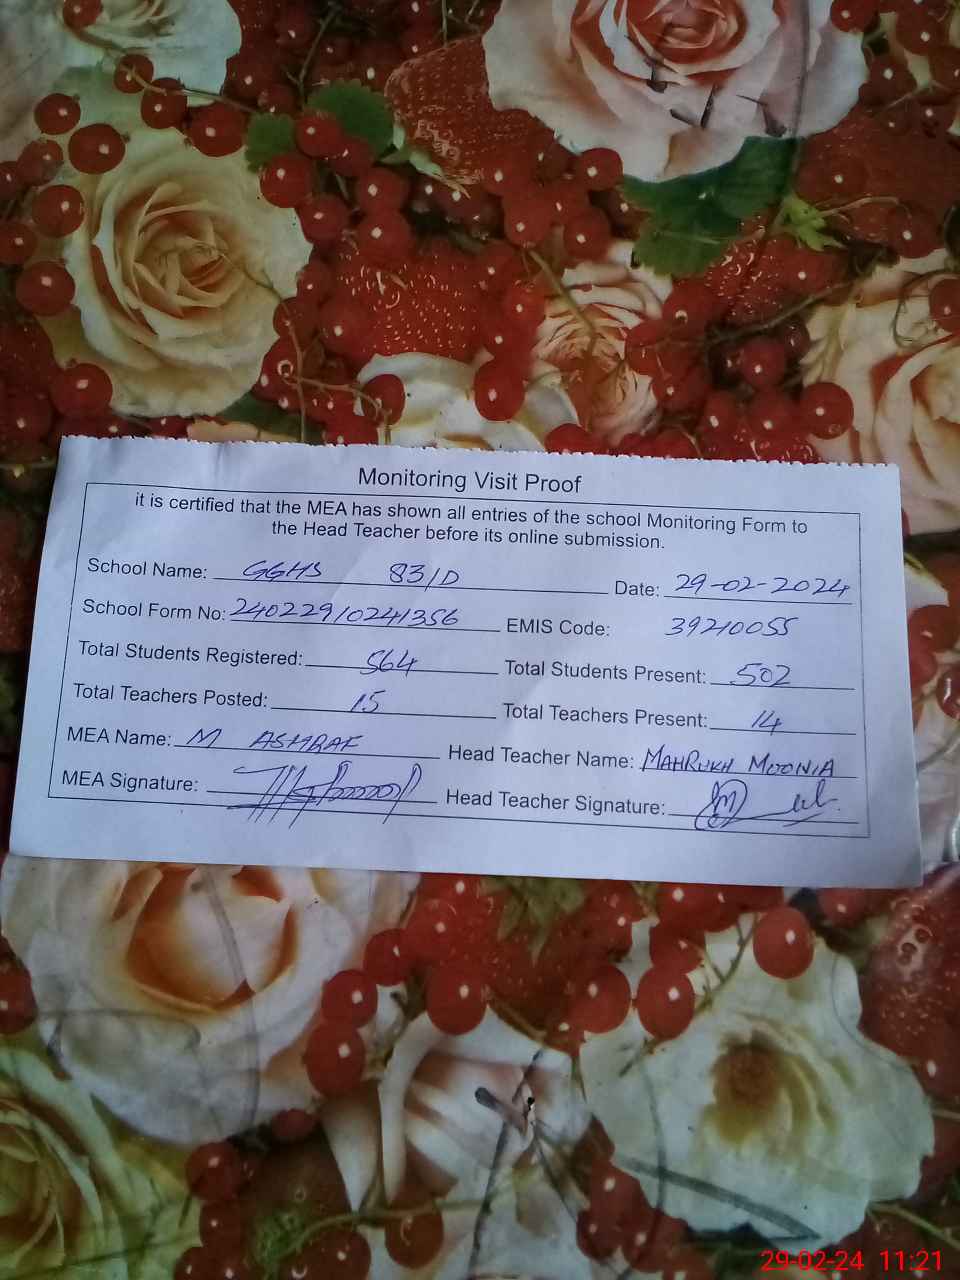 Monitoring Visit Proof
it is certified that the MEA has shown all entries of the school Monitoring Form to
the Head Teacher before its online submission.
School Name: GGHS 83/D Date: 29-02-2024
School Form No: 24022910241356 EMIS Code: 39210055
Total Students Registered: 564 Total Students Present: 502
Total Teachers Posted: 15 Total Teachers Present: 14
MEA Name: M ASHRAF Head Teacher Name: MAHRUKH MOONIA
MEA Signature: Head Teacher Signature:
29-02-24 11:21